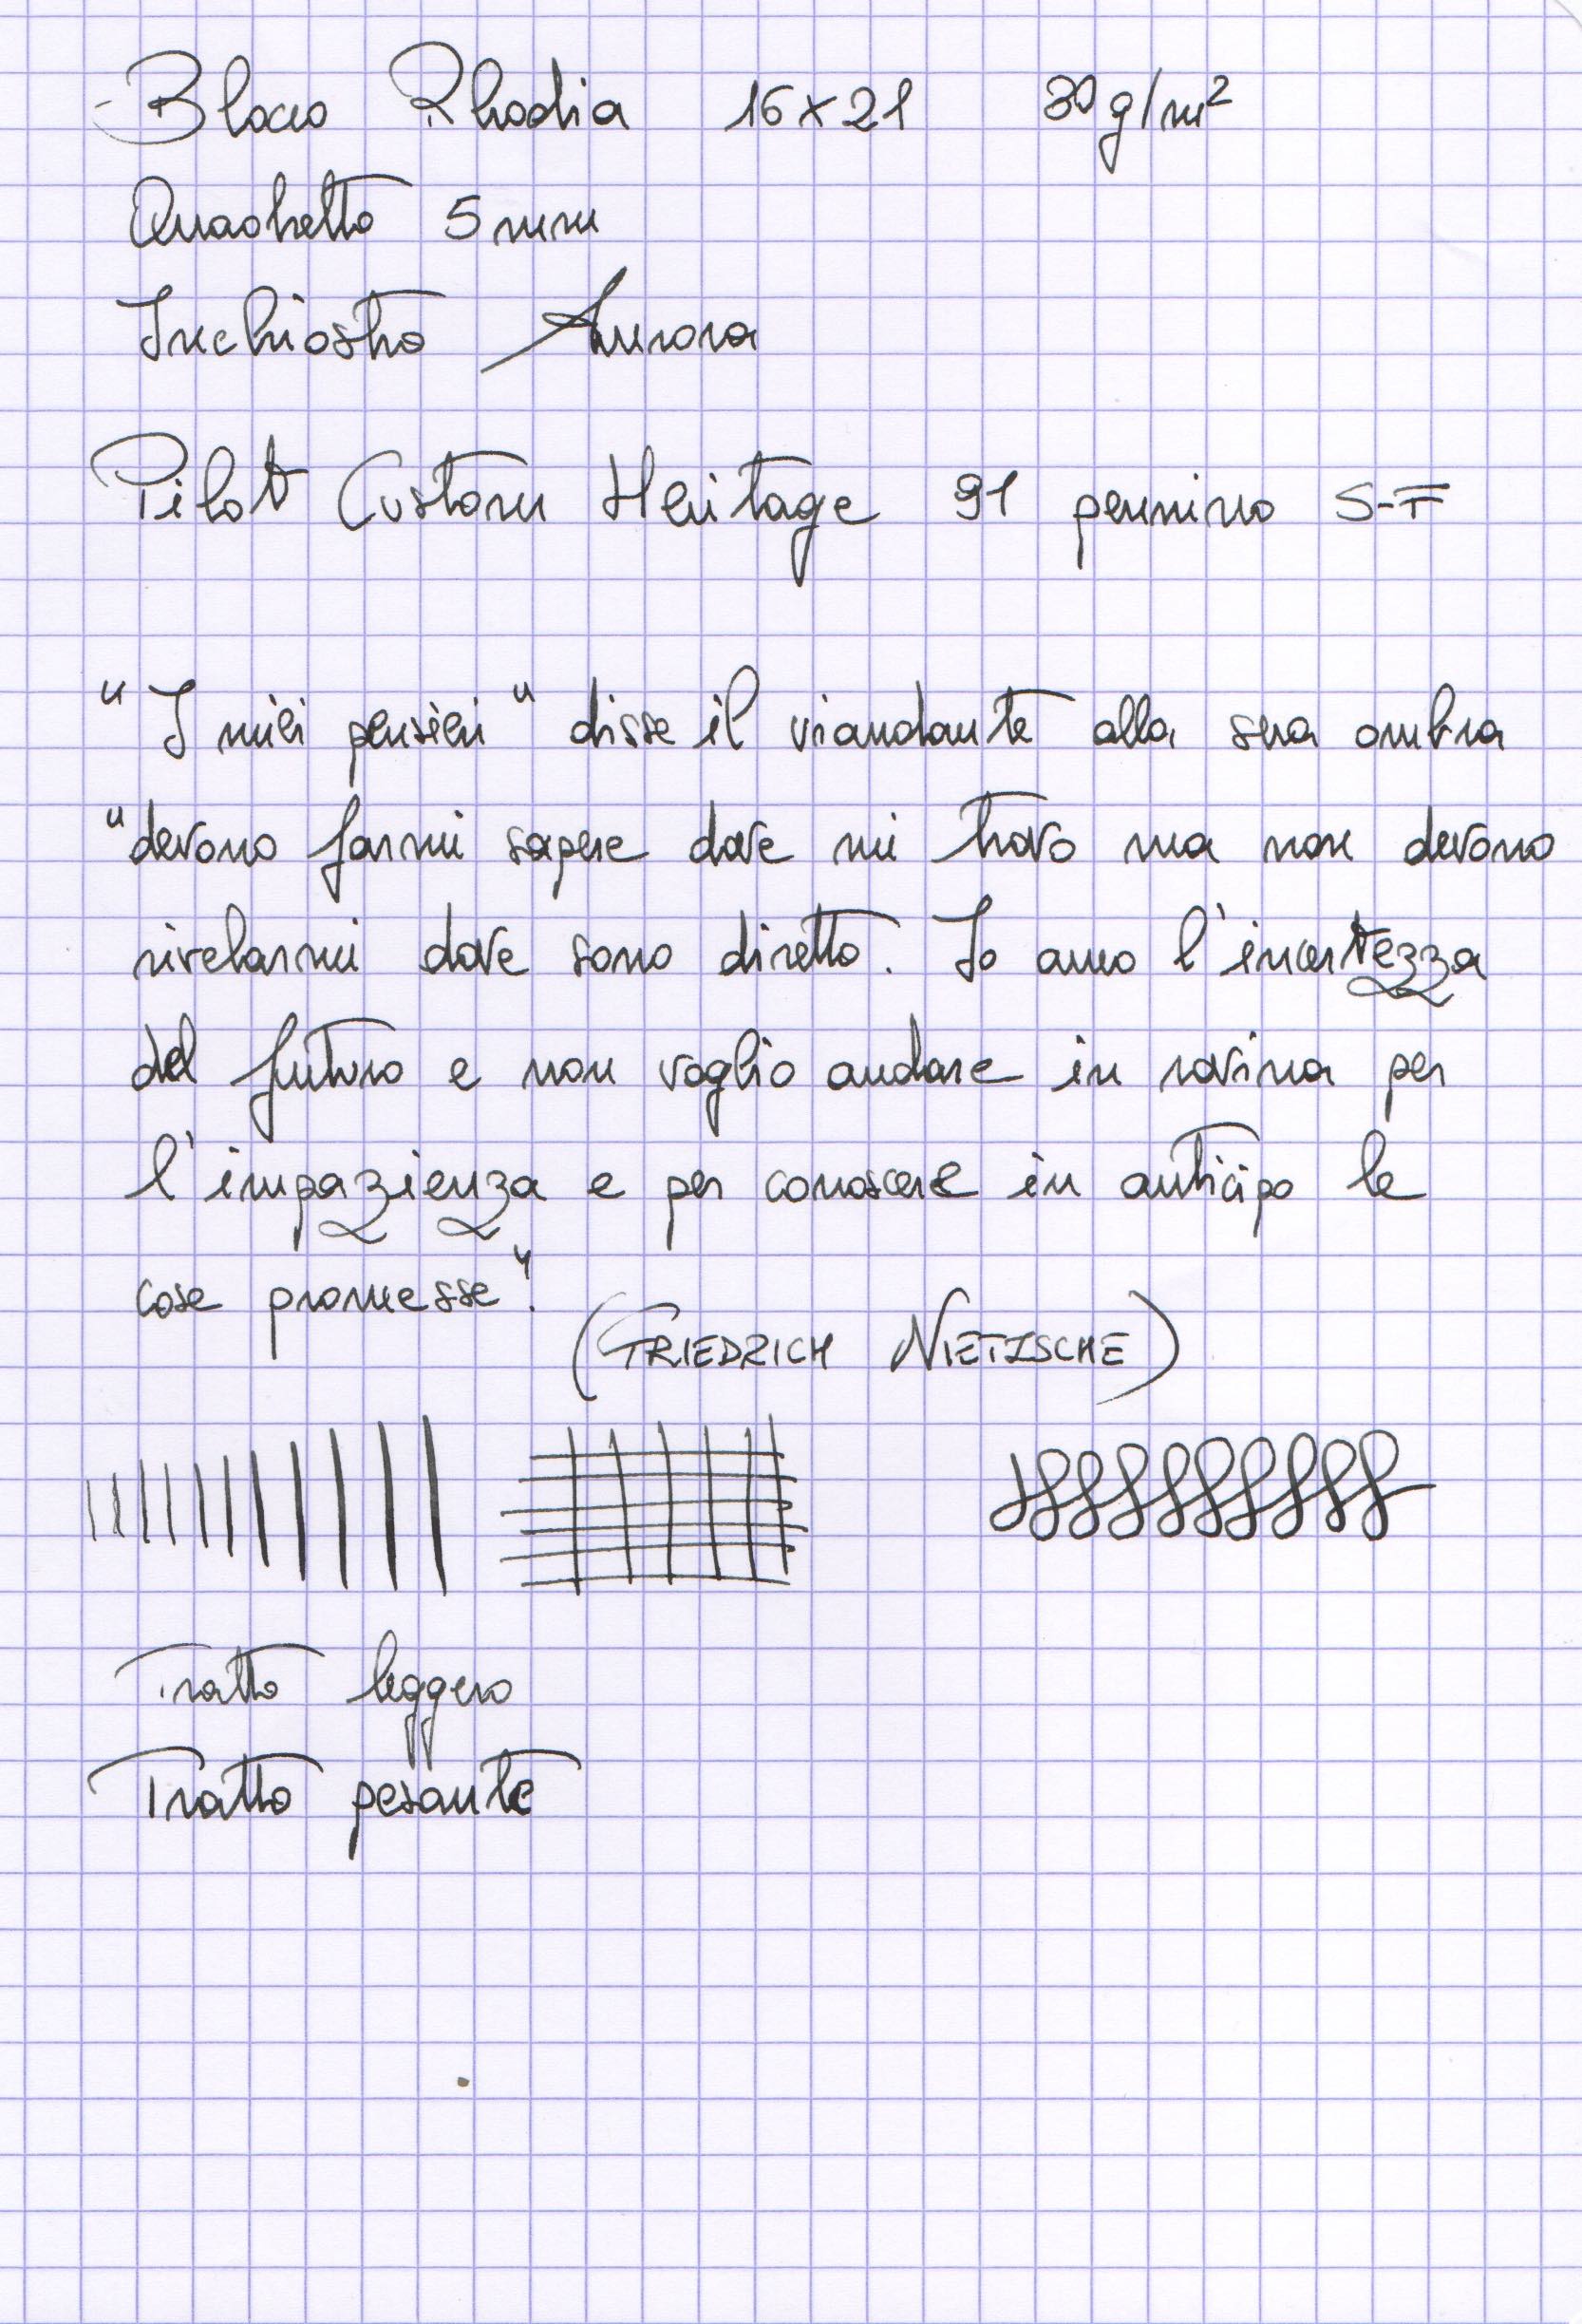 Blocco Rhodia 16x21 80 g/m²
Quadretto 5 mm
Inchiostro Aurora
Pilot Custom Heritage 91 pennino S-F
"I miei pensieri" disse il viandante alla sua ombra
"devono farmi sapere dove mi trovo ma non devono
rivelarmi dove sono diretto. Io amo l'incertezza
del futuro e non voglio andare in rovina per
l'impazienza e per conoscere in anticipo le
cose promesse".
(FRIEDRICH NIETZSCHE)
Tratto leggero
Tratto pesante